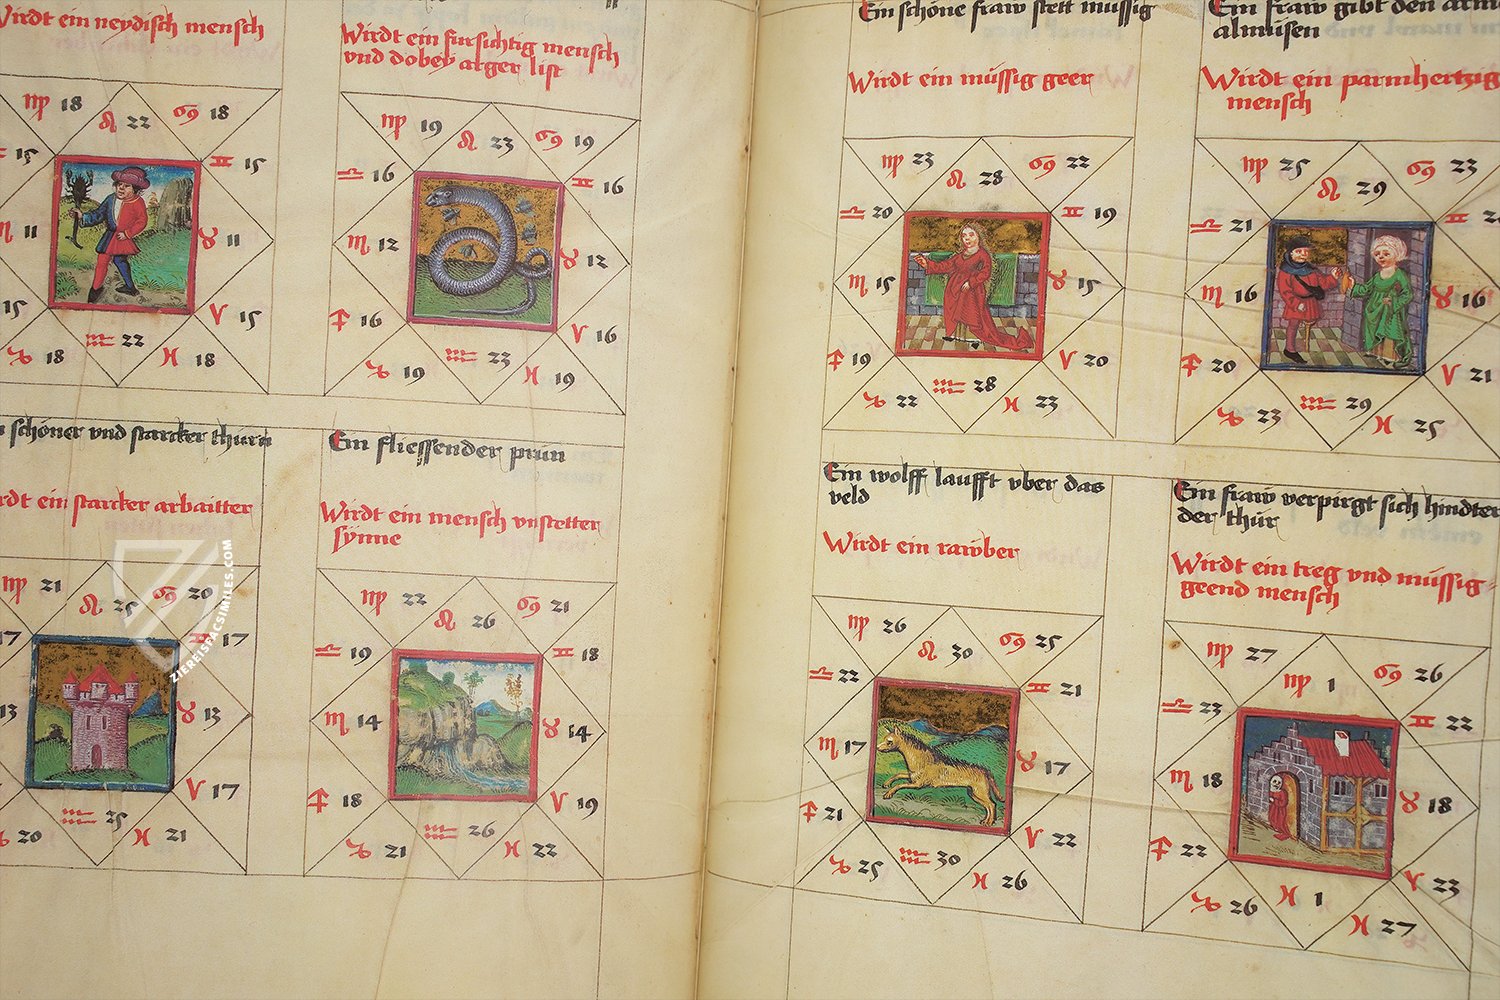 Wirdt ein neydisch mensch
Wirdt ein fursichtig mensch
vnd dobey arger list
♍ 18
♌ 22
♋ 18
15
♊ 15
♏ 11
♉ 11
15
♈ 15
♑ 18
♒ 22
♓ 18
♍ 19
♌ 23
♋ 19
♎ 16
♊ 16
♏ 12
♉ 12
♐ 16
♈ 16
♑ 19
♒ 23
♓ 19
schöner vnd starcker thurn
ein starcker arbaitter
♍ 21
♌ 25
♋ 20
17
♊ 17
13
♉ 13
♈ 17
20
♒ 25
♓ 21
Ein fliessender prun
Wirdt ein mensch vnstetter
synne
♍ 22
♌ 26
♋ 21
♎ 19
♊ 18
♏ 14
♉ 14
♐ 18
♈ 19
♑ 21
♒ 26
♓ 22
Ein schöne fraw stett mussig
Wirdt ein müssig geer
♍ 23
♌ 28
♋ 22
♎ 20
♊ 19
♏ 15
♉ 15
♐ 19
♈ 20
♑ 22
♒ 28
♓ 23
Ein fraw gibt den
almusen
Wirdt ein parmhertzig
mensch
♍ 25
♌ 29
♋ 23
♎ 21
♊
♏ 16
♉ 16
♐ 20
♈ 21
♑ 23
♒ 29
♓ 25
Ein wolff laufft vber das
veld
Wirdt ein rawber
♍ 26
♌ 30
♋ 25
♎ 22
♊ 21
♏ 17
♉ 17
♐ 21
♈ 22
♑ 25
♒ 30
♓ 26
Ein fraw verpirgt sich hindter
der thür
Wirdt ein treg vnd müssig
geend mensch
♍ 27
♍ 1
♋ 26
♎ 23
♊ 22
♏ 18
♉ 18
♐ 22
♈ 23
♑ 26
♓ 1
♓ 27
ZIEREISFACSIMILES.COM